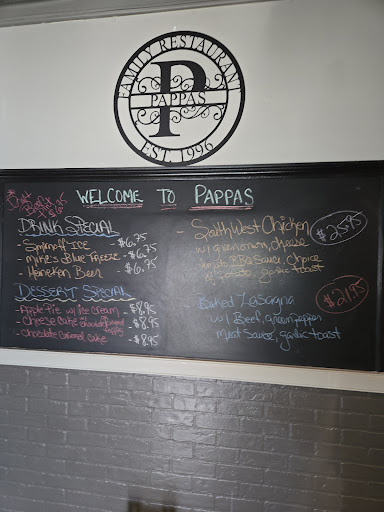 FAMILY RESTAURANT
P
PAPPAS
EST. 1996
WELCOME TO PAPPAS
DRINK SPECIAL
- Smirnoff ICE - $6.75
- Mike's Blue Freeze - $6.75
- Heineken Beer - $6.75
DESSERT SPECIAL
- Apple Pie w/ ice cream - $8.95
- Cheese Cake - $8.95
- Chocolate Caramel Cake - $8.95
- SouthWest Chicken $25.95
w/ green onion, cheese
BBQ Sauce, Choice
of Potato, garlic toast
- Baked Lasagna $21.95
w/ Beef, green pepper
meat Sauce, garlic toast